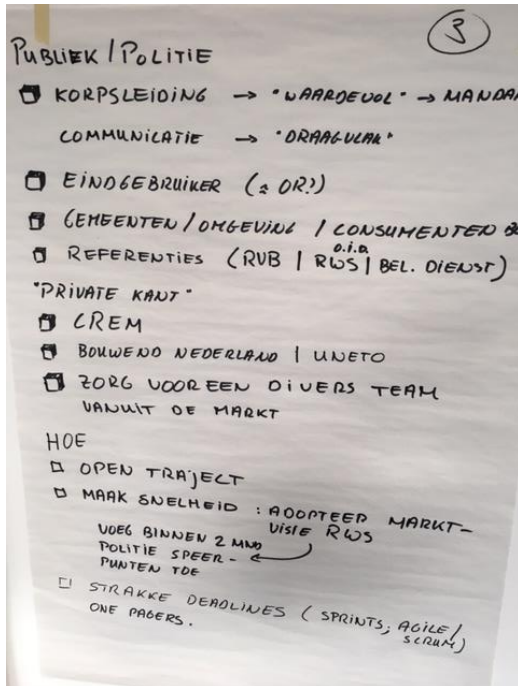 3
PUBLIEK / POLITIE
KORPSLEIDING → "WAARDEVOL" → MANDA
COMMUNICATIE → "DRAAGVLAK"
EINDGEBRUIKER (± OR?)
GEMEENTEN / OMGEVING / CONSUMENTEN
o.i.d.
REFERENTIES (RVB | RWS | BEL. DIENST)
"PRIVATE KANT"
CREM
BOUWEND NEDERLAND | UNETO
ZORG VOOR EEN DIVERS TEAM
VANUIT DE MARKT
HOE
OPEN TRAJECT
MAAK SNELHEID : ADOPTEER MARKT-
VISIE RWS
VOEG BINNEN 2 MND
POLITIE SPEER-
PUNTEN TOE
STRAKKE DEADLINES ( SPRINTS; AGILE/
SCRUM)
ONE PAGERS.